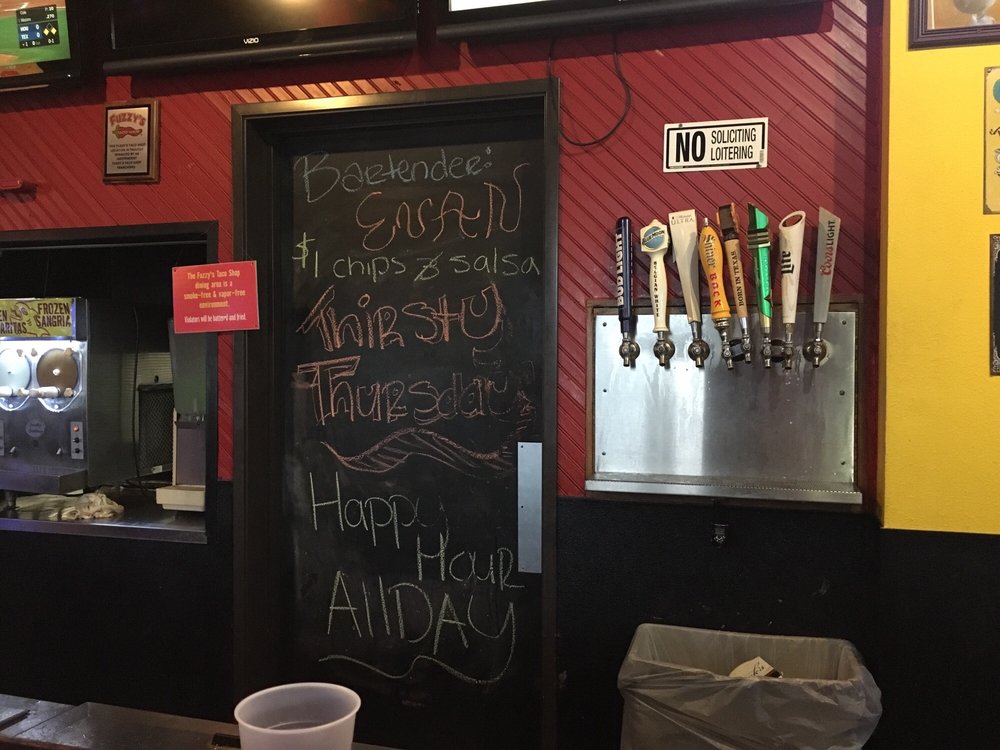 HOU 0
TEX 0
VIZIO
FUZZY'S
Bartender:
EVAN
$1 chips & salsa
Thirsty
Thursday
Happy
Hour
AllDAY
NO SOLICITING
LOITERING
The Fuzzy's Taco Shop
dining area is a
smoke-free & vapor-free
environment.
Violators will be battered and fried.
FROZEN
SANGRIA
BUD LIGHT
BLUE MOON
BELGIAN WHITE
ULTRA
Shiner
BOCK
BORN IN TEXAS
Lite
Coors LIGHT